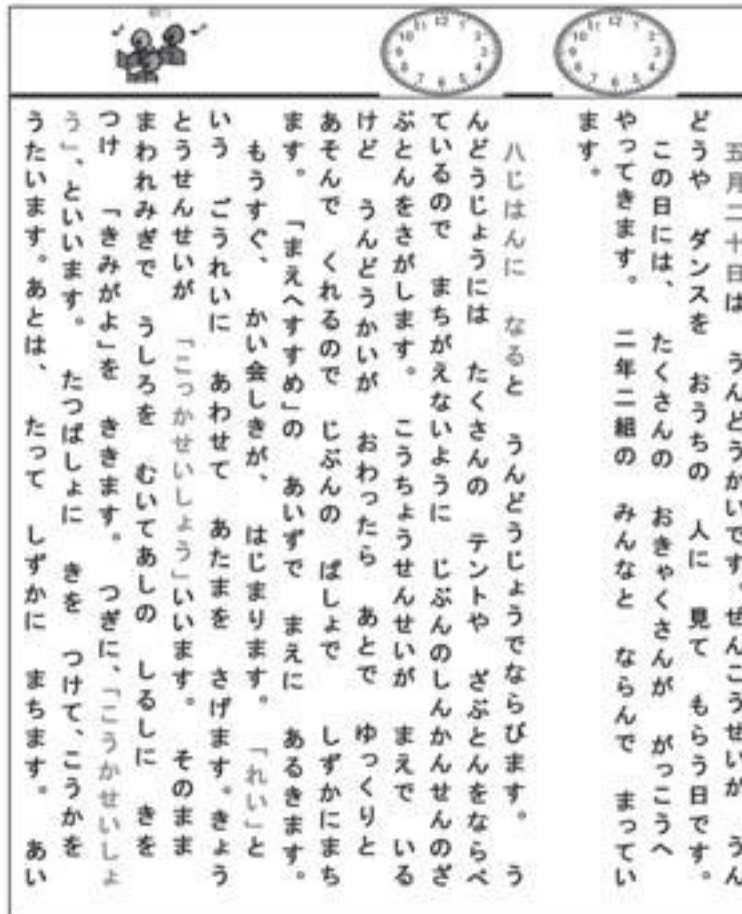 五月二十日は　うんどうかいです。ぜんこうせいが　うん
どうや　ダンスを　おうちの　人に　見て　もらう日です。
この日には、　たくさんの　おきゃくさんが　がっこうへ
やってきます。　二年二組の　みんなと　ならんで　まってい
ます。
八じはんに　なると　うんどうじょうでならびます。　う
んどうじょうには　たくさんの　テントや　ざぶとんをならべ
ているので　まちがえないように　じぶんのしんかんせんのざ
ぶとんをさがします。　こうちょうせんせいが　まえで　いる
けど　うんどうかいが　おわったら　あとで　ゆっくりと
あそんで　くれるので　じぶんの　ばしょで　しずかにまち
ます。　「まえへすすめ」の　あいずで　まえに　あるきます。
もうすぐ、　かい会しきが、　はじまります。　「れい」と
いう　ごうれいに　あわせて　あたまを　さげます。きょう
とうせんせいが　「こっかせいしょう」いいます。　そのまま
まわれみぎで　うしろを　むいてあしの　しるしに　きを
つけ　「きみがよ」を　ききます。　つぎに、「こうかせいしょ
う」、といいます。　たつばしょに　きを　つけて、こうかを
うたいます。あとは、　たって　しずかに　まちます。　あい